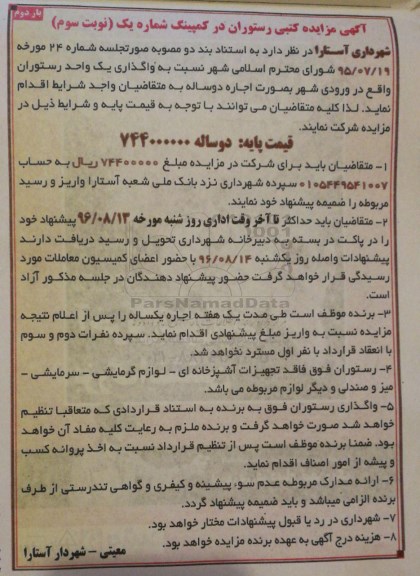 بار دوم
آگهی مزایده کتبی رستوران در کمپینگ شماره یک (نوبت سوم)
شهرداری آستارا در نظر دارد به استناد بند دو مصوبه صورتجلسه شماره ۲۴ مورخه
۹۵/۰۷/۱۹ شورای محترم اسلامی شهر نسبت به واگذاری یک واحد رستوران
واقع در ورودی شهر بصورت اجاره دوساله به متقاضیان واجد شرایط اقدام
نماید. لذا کلیه متقاضیان می توانند با توجه به قیمت پایه و شرایط ذیل در
مزایده شرکت نمایند.
قیمت پایه: دوساله ۷۴۴۰۰۰۰۰۰
۱- متقاضیان باید برای شرکت در مزایده مبلغ ۷۴۴۰۰۰۰۰ ریال به حساب
۰۱۰۵۴۴۹۵۴۱۰۰۷ سپرده شهرداری نزد بانک ملی شعبه آستارا واریز و رسید
مربوطه را ضمیمه پیشنهاد خود نمایند.
۲- متقاضیان باید حداکثر تا آخر وقت اداری روز شنبه مورخه ۹۶/۰۸/۱۳ پیشنهاد خود
را در پاکت در بسته به دبیرخانه شهرداری تحویل و رسید دریافت دارند
پیشنهادات واصله روز یکشنبه ۹۶/۰۸/۱۴ با حضور اعضای کمیسیون معاملات مورد
رسیدگی قرار خواهد گرفت حضور پیشنهاد دهندگان در جلسه مذکور آزاد
است.
ParsNamadData
۳- برنده موظف است طی مدت یک هفته اجاره یکساله را پس از اعلام نتیجه
مزایده نسبت به واریز مبلغ پیشنهادی اقدام نماید. سپرده نفرات دوم و سوم
با انعقاد قرارداد با نفر اول مسترد نخواهد شد.
۴- رستوران فوق فاقد تجهیزات آشپزخانه ای - لوازم گرمایشی - سرمایشی -
میز و صندلی و دیگر لوازم مربوطه می باشد.
۵- واگذاری رستوران فوق به برنده به استناد قراردادی که متعاقبا تنظیم
خواهد شد صورت خواهد گرفت و برنده ملزم به رعایت کلیه مفاد آن خواهد
بود. ضمنا برنده موظف است پس از تنظیم قرارداد نسبت به اخذ پروانه کسب
و پیشه از امور اصناف اقدام نماید.
۶- ارائه مدارک مربوطه عدم سو، پیشینه و کیفری و گواهی تندرستی از طرف
برنده الزامی میباشد و باید ضمیمه پیشنهاد گردد.
۷- شهرداری در رد یا قبول پیشنهادات مختار خواهد بود.
۸- هزینه درج آگهی به عهده برنده مزایده خواهد بود.
معیتی - شهردار آستارا